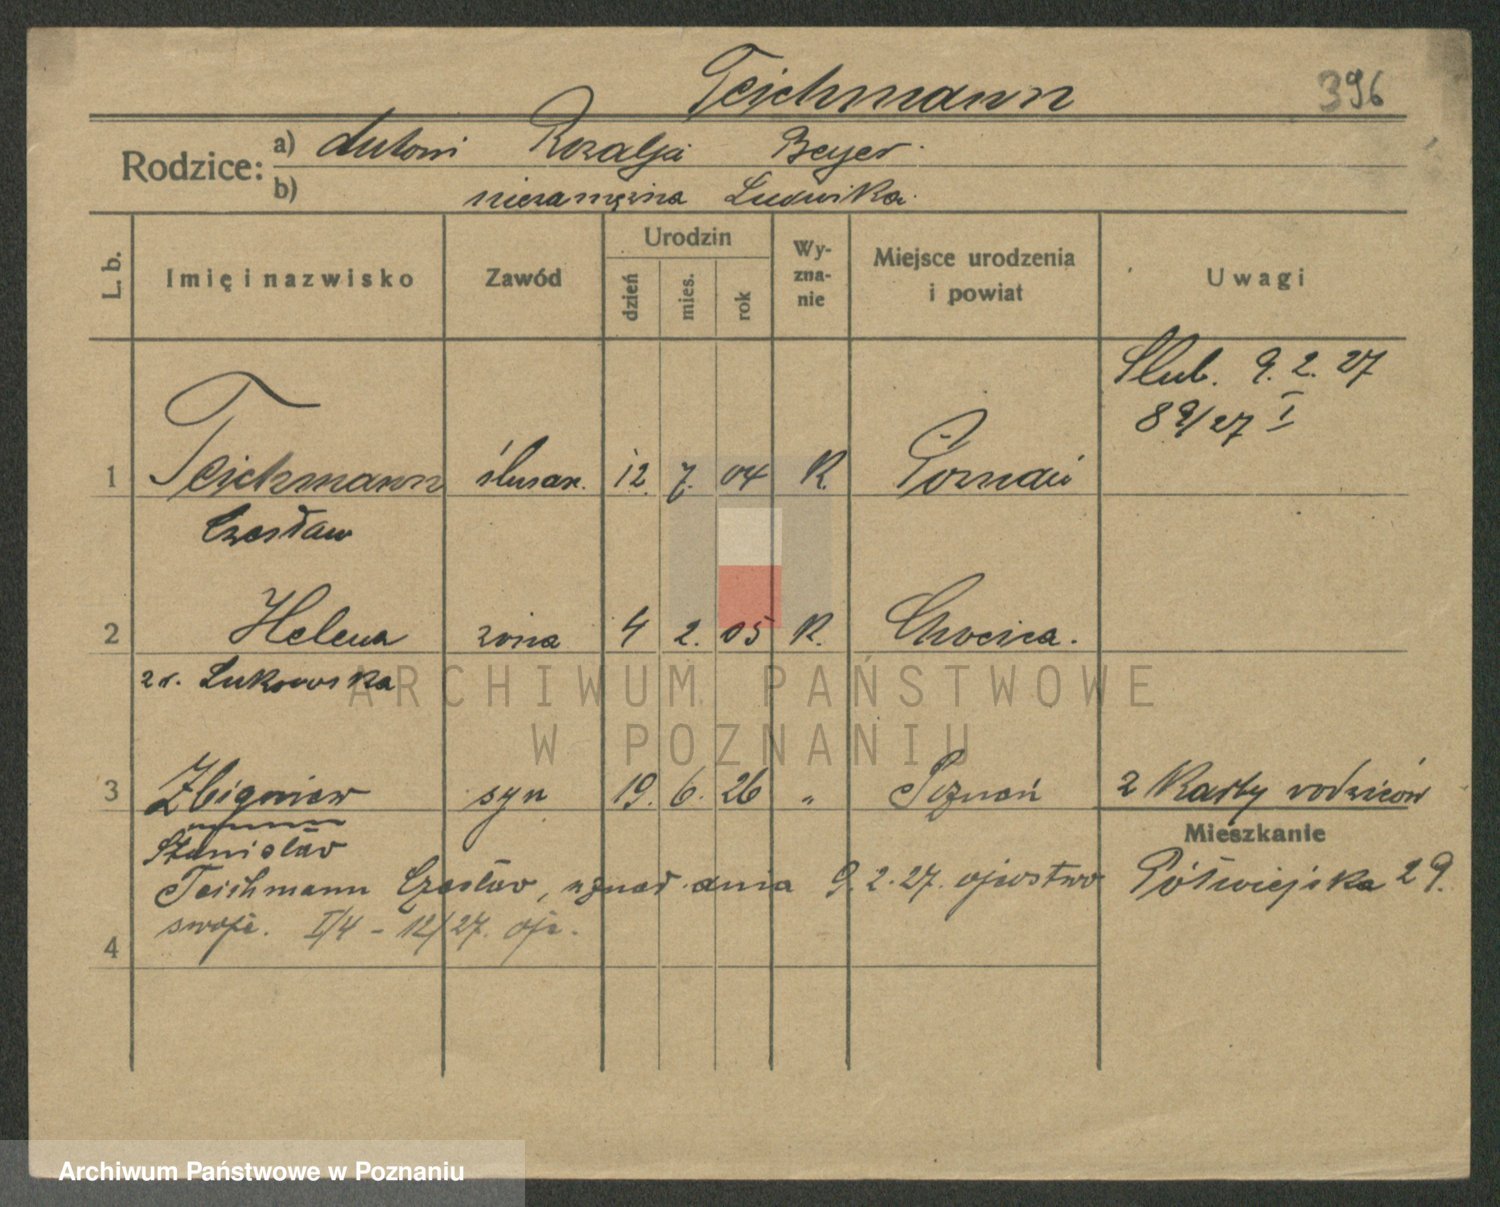 Teichmann 396
Rodzice: a) Antoni Rozalja Beyer
b) niezamężna Ludwika
L. b. Imię i nazwisko Zawód Urodzin dzień mies. rok Wy-zna-nie Miejsce urodzenia i powiat Uwagi
Ślub. 9. 2. 27
89/27 I
1 Teichmann ślusarz. 12. 7. 04 R. Poznań
Czesław
2 Helena żona 4 2. 05 R. Chocicza.
z r. Łukowska
ARCHIWUM PAŃSTWOWE
W POZNANIU
3 Zbigniew syn 19. 6. 26 " Poznań 2 Karty rodziców
Stanisław
Mieszkanie
Teichmann Czesław, uznał dnia 9. 2. 27. ojcostwo Półwiejska 29.
swoje. I/4 - 12/27.
4
Archiwum Państwowe w Poznaniu